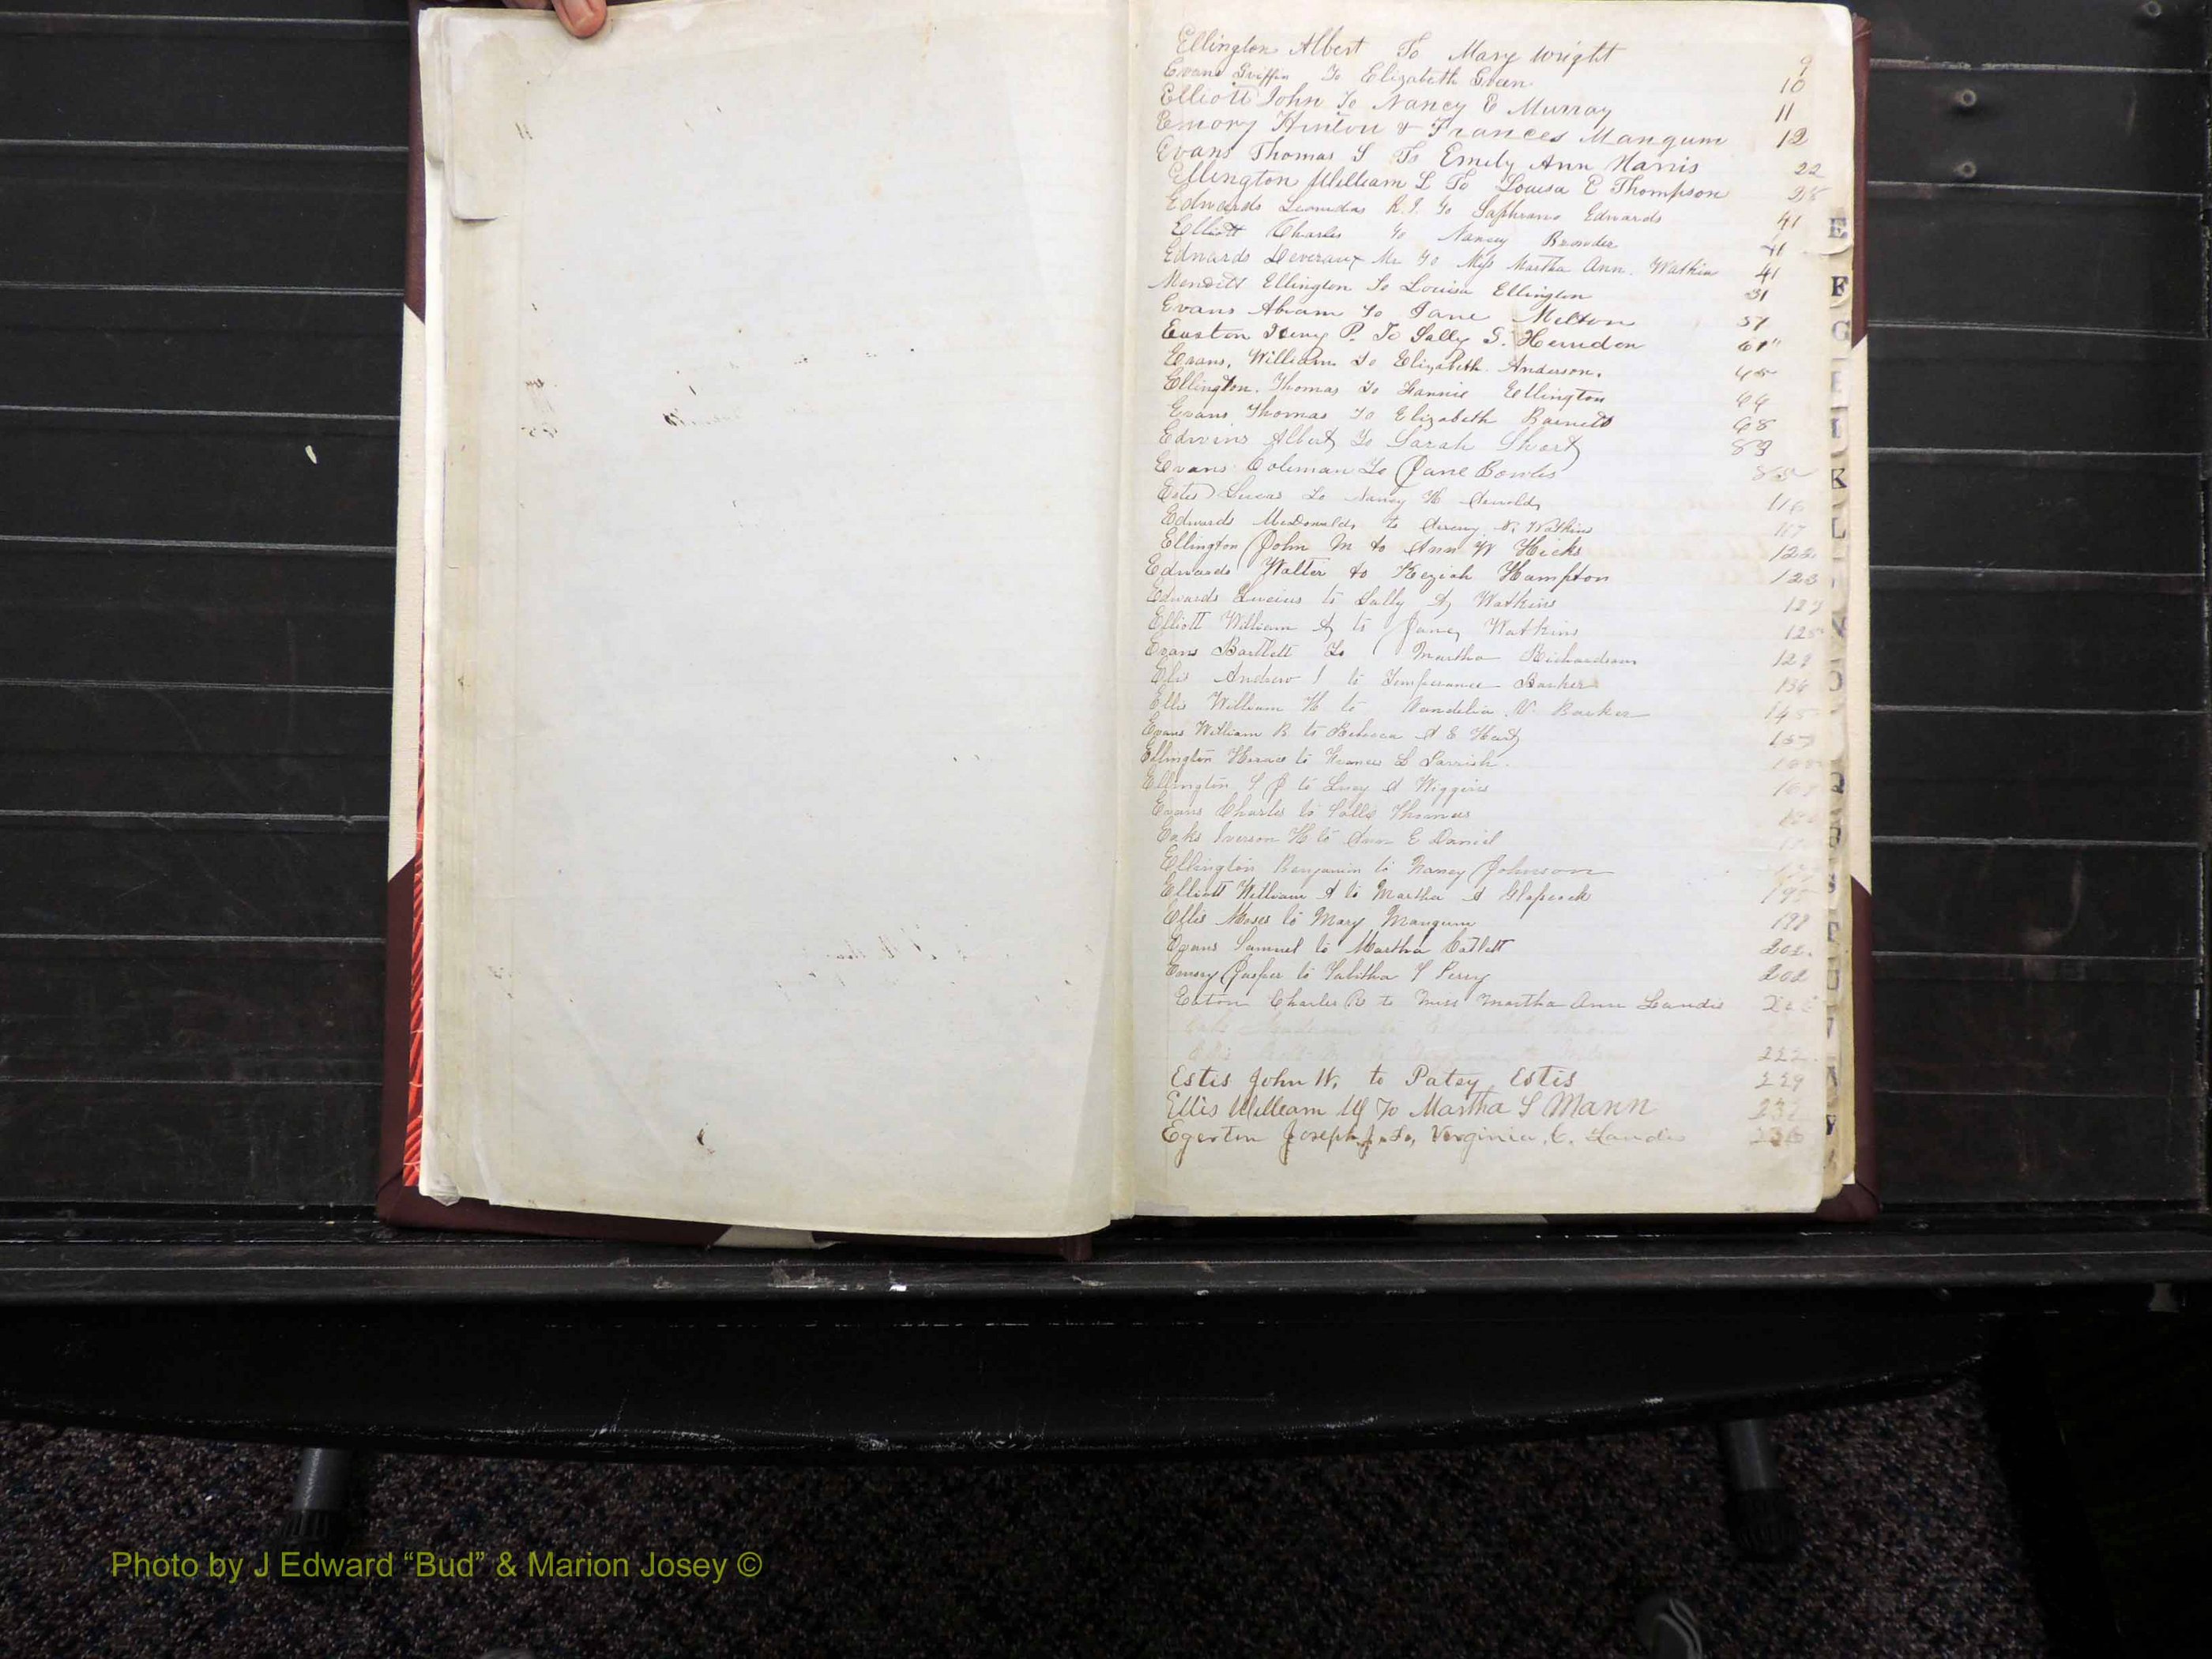 Ellington Albert To Mary Wright 9
Evans Griffin To Elizabeth Green 10
Elliott John To Nancy E Murray 11
Emory Hinton & Frances Mangum 12
Evans Thomas S To Emily Ann Harris 22
Ellington William L To Louisa C Thompson
Edwards Leonidas R. To Saphrano Edwards 41
Elliott Charles To Nancy Browder 41
Edwards Deveraux Mr To Miss Martha Ann. Watkins 41
Ellington To Louisa Ellington 51
Evans Abram To Jane Melton 57
Easton P. To Sally S. Herndon 61
Evans, William To Elizabeth Anderson. 65
Ellington. Thomas To Fannie Ellington 64
Evans Thomas To Elizabeth Barnett 68
Edwins Albert To Sarah Short 83
Evans Coleman To Jane Bowles 85
Estes Lucas To Nancy H 116
Edwards McDonald, to N. Watkins 117
Ellington John M to Ann W Hicks 122
Edwards Walter to Keziah Hampton 123
Edwards Lucius to Sally A, Watkins
Elliott William A, to Jane, Watkins 125
Evans Bartlett To Martha Richardson 129
Ellis Andrew J to Temperance Barker 136
Ellis William H to V. Barker 145
Evans William B to Rebecca A E Hart 157
Ellington Horace to Frances L Parrish.
Ellington to Lucy A Wiggins
Evans Charles to Sallie Thomas
Eaks Iverson H to Ann E Daniel
Ellington Benjamin to Nancy Johnson
Elliott William A to Martha A Glapcock 195
Ellis Moses to Mary Mangum 199
Evans Samuel to Martha Catlett 202.
Emory Jasper to Tabitha Y Perry 202
Eaton Charles R to Miss Martha Ann Landis
222
Estis John W. to Patsy Estis 229
Ellis William W To Martha S Mann 232
Egerton Joseph J. To, Virginia, C. Landis 236
E
F
G
I
K
L
N
O
Q
R
S
T
U
V
Photo by J Edward “Bud” & Marion Josey ©